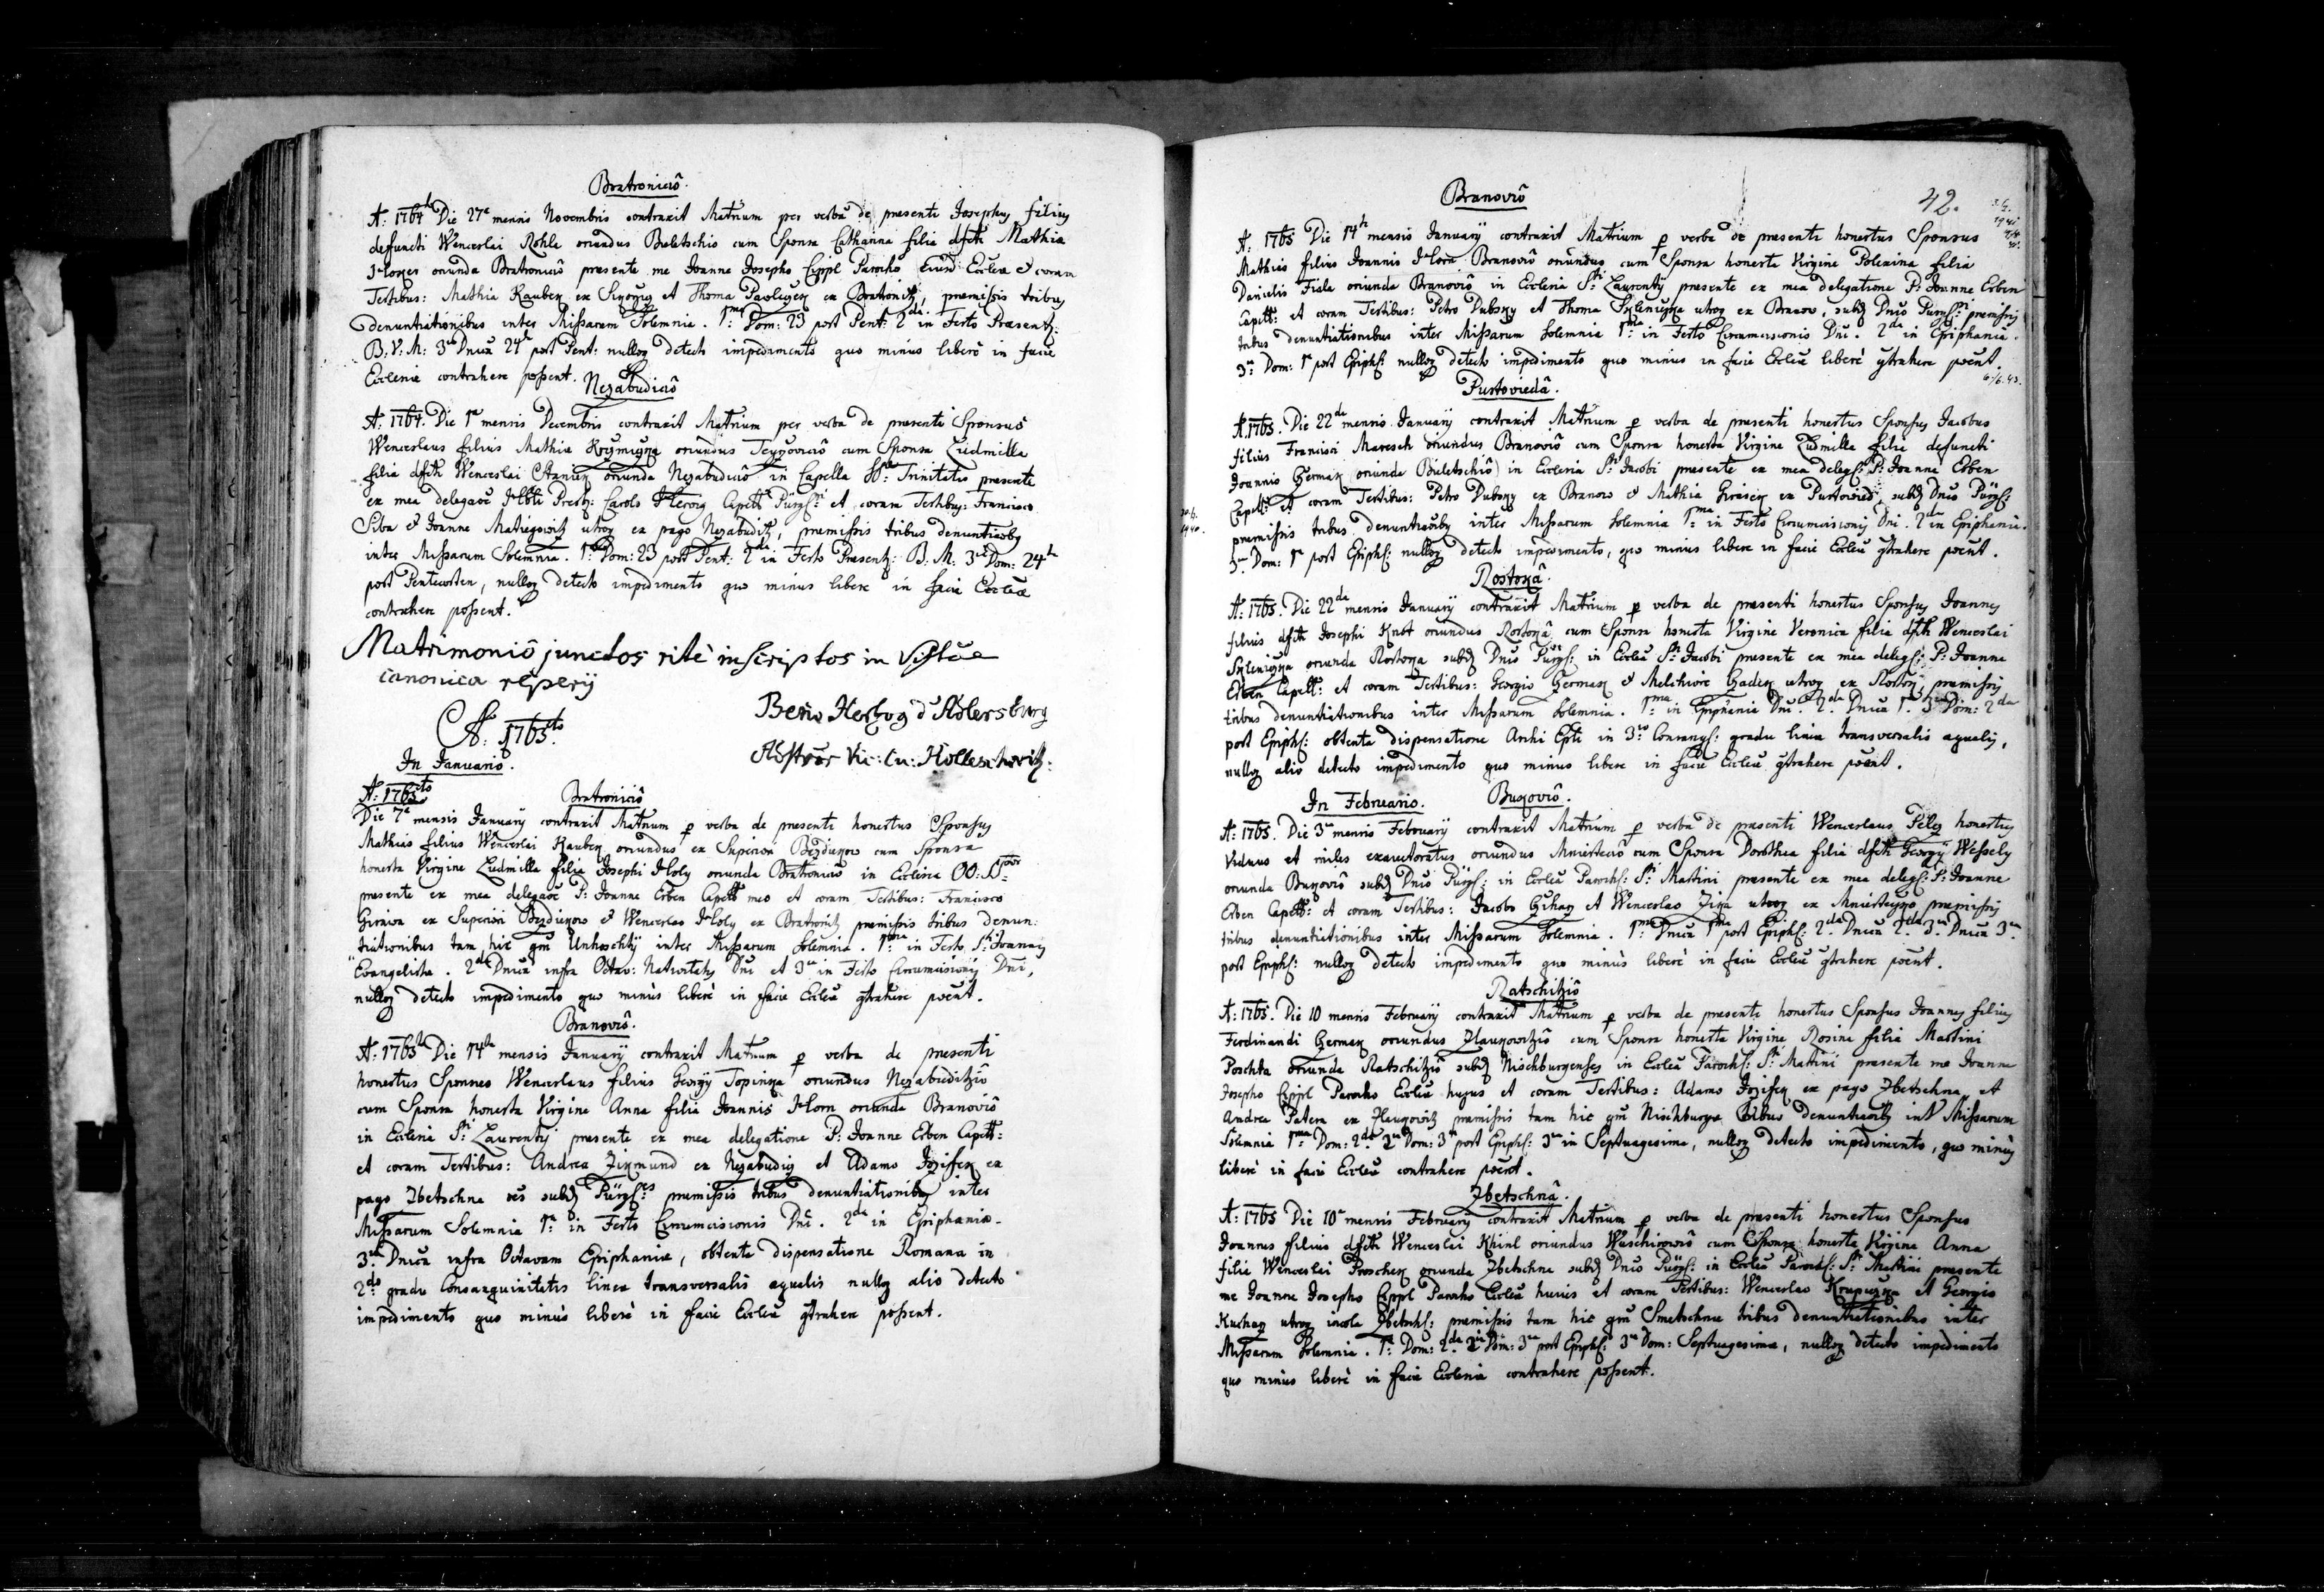 Bratroniciô.
A: 1764te Die 27a mensis Novembris contraxit Matrium per verba de presenti Josephus filius
defuncti Wenceslai Rohle oriundus Beletschio cum Sponsa Catharina filia dfcti Mathiæ
oriunda Bratroniciô presente me Joanne Josepho Cippl Parocho Ecclesiæ et coram
Testibus: Mathia Raubex ex et Thoma ex Bratronitz, præmissis tribus
denuntiationibus inter Missarum Solemnia. 1ma Dom: 23 post Pent: 2da in Festo Præsent:
B: V: M: 3a Dnica 24a post Pent: nulloq detecto impedimento quo minus liberè in facie
Ecclesiæ contrahere possent.
Nezabudiciô
A: 1764. Die 1a mensis Decembris contraxit Matrium per verba de presenti Sponsus
Wenceslaus filius Mathiæ oriundus cum Sponsa Ludmilla
filia dfcti Wenceslai oriunda Nezabudiciô in Capella SSæ Trinitatis presente
ex mea delegaoe Presb: Carolo Herzig Capell: Pürgl: et coram Testibus: Francisco
Siba et Joanne utroq ex pago Nezabuditz, præmissis tribus denuntiaoibq
inter Missarum Solemnia. 1ma Dom: 23 post Pent: 2da in Festo Præsent: B: M: 3a Dom: 24ta
post Pentecosten, nulloq detecto impedimento quo minus liberè in facie Ecclesiæ
contrahere possent.
Matrimoniô junctos ritè inscriptos in
canonica reperij
Herzog d'Adlersburg
Vic: Cu: Holleschovitz:
A: 1765to
In Januario.
A: 1765to
Bratroniciô
Die 7a mensis January contraxit Matrium p verba de presenti honestus Sponsus
Mathias filius Wenceslai Raubex oriundus ex Superiori Bezdiekow cum Sponsa
honesta Virgine Ludmilla filia Josephi Holy oriunda Bratroniciô in Ecclesia OO: SS:
presente ex mea delegaoe P: Joanne Erben Capell: meo et coram Testibus: Francisco
ex Superiori Bezdiekow et Wenceslao Holy ex Bratronitz præmissis tribus denun:
tiationibus tam hic qm Unhoschtij inter Missarum Solemnia. 1ma in Festo Sti Joannis
Evangelistæ. 2da Dnica infra Octav: Nativitatis Dni et 3a in Festo Circumcisionis Dni,
nulloq detecto impedimento quo minùs liberè in facie Eccleæ gtrahere poent.
Branoviô.
A: 1765ti Die 14ta mensis January contraxit Matrium p verba de presenti
honestus Sponsus Wenceslaus filius Georgij Topinka oriundus Nezabuditziô
cum Sponsa honesta Virgine Anna filia Joannis Horn oriunda Branoviô
in Ecclesia Sti Laurentij presente ex mea delegatione P: Joanne Erben Capell:
et coram Testibus: Andrea Zikmund ex Nezabudiz et Adamo ex
pago Zbetschna subd Pürgl: præmissis tribus denuntiationibus inter
Missarum Solemnia 1a in Festo Circumcisionis Dni. 2da in Epiphania.
3a Dnica infra Octavam Epiphaniæ, obtenta dispensatione Romana in
2do gradu Consanguinitatis lineæ transversalis æqualis nulloq alio detecto
impedimento quo minùs liberè in facie Eccleæ gtrahere possent.
Branoviô
42.
A: 1765 Die 14ta mensis January contraxit Matrium p verba de presenti honestus Sponsus
Mathias filius Joannis Horn Branoviô oriundus cum Sponsa honesta Virgine Polexina filia
Danielis Fiala oriunda Branoviô in Ecclesia Sti Laurentij presente ex mea delegatione P: Joanne Erben
Capell: et coram Testibus: Petro Dubsky et Thoma utroq ex Branow, subd Dnio Pürgl: præmissis
tribus denuntiationibus inter Missarum Solemnia 1ma in Festo Circumcisionis Dni. 2da in Epiphania.
3a Dom: 1a post Epiph: nulloq detecto impedimento quo minus in facie Eccleæ liberè gtrahere poent.
Pustoviedâ.
A: 1765. Die 22da mensis January contraxit Matrium p verba de presenti honestus Sponsus Jacobus
filius Francisci Maresch oriundus Branoviô cum Sponsa honesta Virgine Ludmilla filia defuncti
Joannis German oriunda Bieletschiô in Ecclesia Sti Jacobi presente ex mea deleg: P: Joanne Erben
Capell: et coram Testibus: Petro Dubsky ex Branow et Mathia ex Pustowied, subd Dnio Pürgl:
præmissis tribus denuntiaoibq inter Missarum Solemnia 1ma in Festo Circumcisionis Dni. 2da in Epiphania.
3a Dom: 1a post Epiph: nulloq detecto impedimento, quo minus liberè in facie Eccleæ gtrahere poent.
Rostokâ.
A: 1765. Die 22da mensis January contraxit Matrium p verba de presenti honestus Sponsus Joannes
filius dfcti Josephi Knot oriundus Rostokâ cum Sponsa honesta Virgine Veronica filia dfcti Wenceslai
oriunda Rostoka subd Dnio Pürgl: in Ecclea Sti Jacobi presente ex mea deleg: P: Joanne
Erben Capell: et coram Testibus: Georgio German et Melchiore utroq ex præmissis
tribus denuntiationibus inter Missarum Solemnia. 1ma in Epiphania Dni. 2da Dnica 1a 3a Dom: 2da
post Epiph: obtenta dispensatione Archi Epli in 3io Consang: gradu lineæ transversalis æqualis,
nulloq alio detecto impedimento quo minus liberè in facie Eccleæ gtrahere poent.
In Februario.
Bukoviô.
A: 1765. Die 3a mensis February contraxit Matrium p verba de presenti Wenceslaus honestus
Viduus et miles exauctoratus oriundus cum Sponsa Dorothea filia dfcti Georgij Wessely
oriunda Bukoviô subd Dnio Pürgl: in Ecclea Paroch: Sti Martini presente ex mea deleg: P: Joanne
Erben Capell: et coram Testibus: Jacobo et Wenceslao utroq ex præmissis
tribus denuntiationibus inter Missarum Solemnia. 1ma Dnica 1ma post Epiph: 2da Dnica 2da 3a Dnica 3a
post Epiph: nulloq detecto impedimento quo minùs liberè in facie Eccleæ gtrahere poent.
Ratschitziô
A: 1765. Die 10 mensis February contraxit Matrium p verba de presenti honestus Sponsus Joannes filius
Ferdinandi German oriundus cum Sponsa honesta Virgine Rosina filia Martini
Poschta oriunda Ratschitziô subd Nischburgenses in Ecclea Paroch: Sti Martini presente me Joanne
Josepho Cippl Parocho Eccleæ hujus et coram Testibus: Adamo ex pago Zbetschna, et
Andrea Patera ex præmissis tam hic qm Nischburgæ tribus denuntiaoibq int Missarum
Solemnia 1ma Dom: 2da 2da Dom: 3a post Epiph: 3a in Septuagesima, nulloq detecto impedimento, quo minùs
liberè in facie Eccleæ contrahere poent.
Zbetschnâ.
A: 1765 Die 10a mensis February contraxit Matrium p verba de presenti honestus Sponsus
Joannes filius dfcti Wenceslai Khinl oriundus cum Sponsa honesta Virgine Anna
filia Wenceslai oriunda Zbetschna subd Dnio Pürgl: in Ecclea Paroch: Sti Martini presente
me Joanne Josepho Cippl Parocho Eccleæ hujus et coram Testibus: Wenceslao et Georgio
utroq incola Zbetsch: præmissis tam hic qm Smetschnæ tribus denuntiationibus inter
Missarum Solemnia. 1a Dom: 2da 2a Dom: 3a post Epiph: 3a Dom: Septuagesima, nulloq detecto impedimento
quo minùs liberè in facie Ecclesiæ contrahere possent.